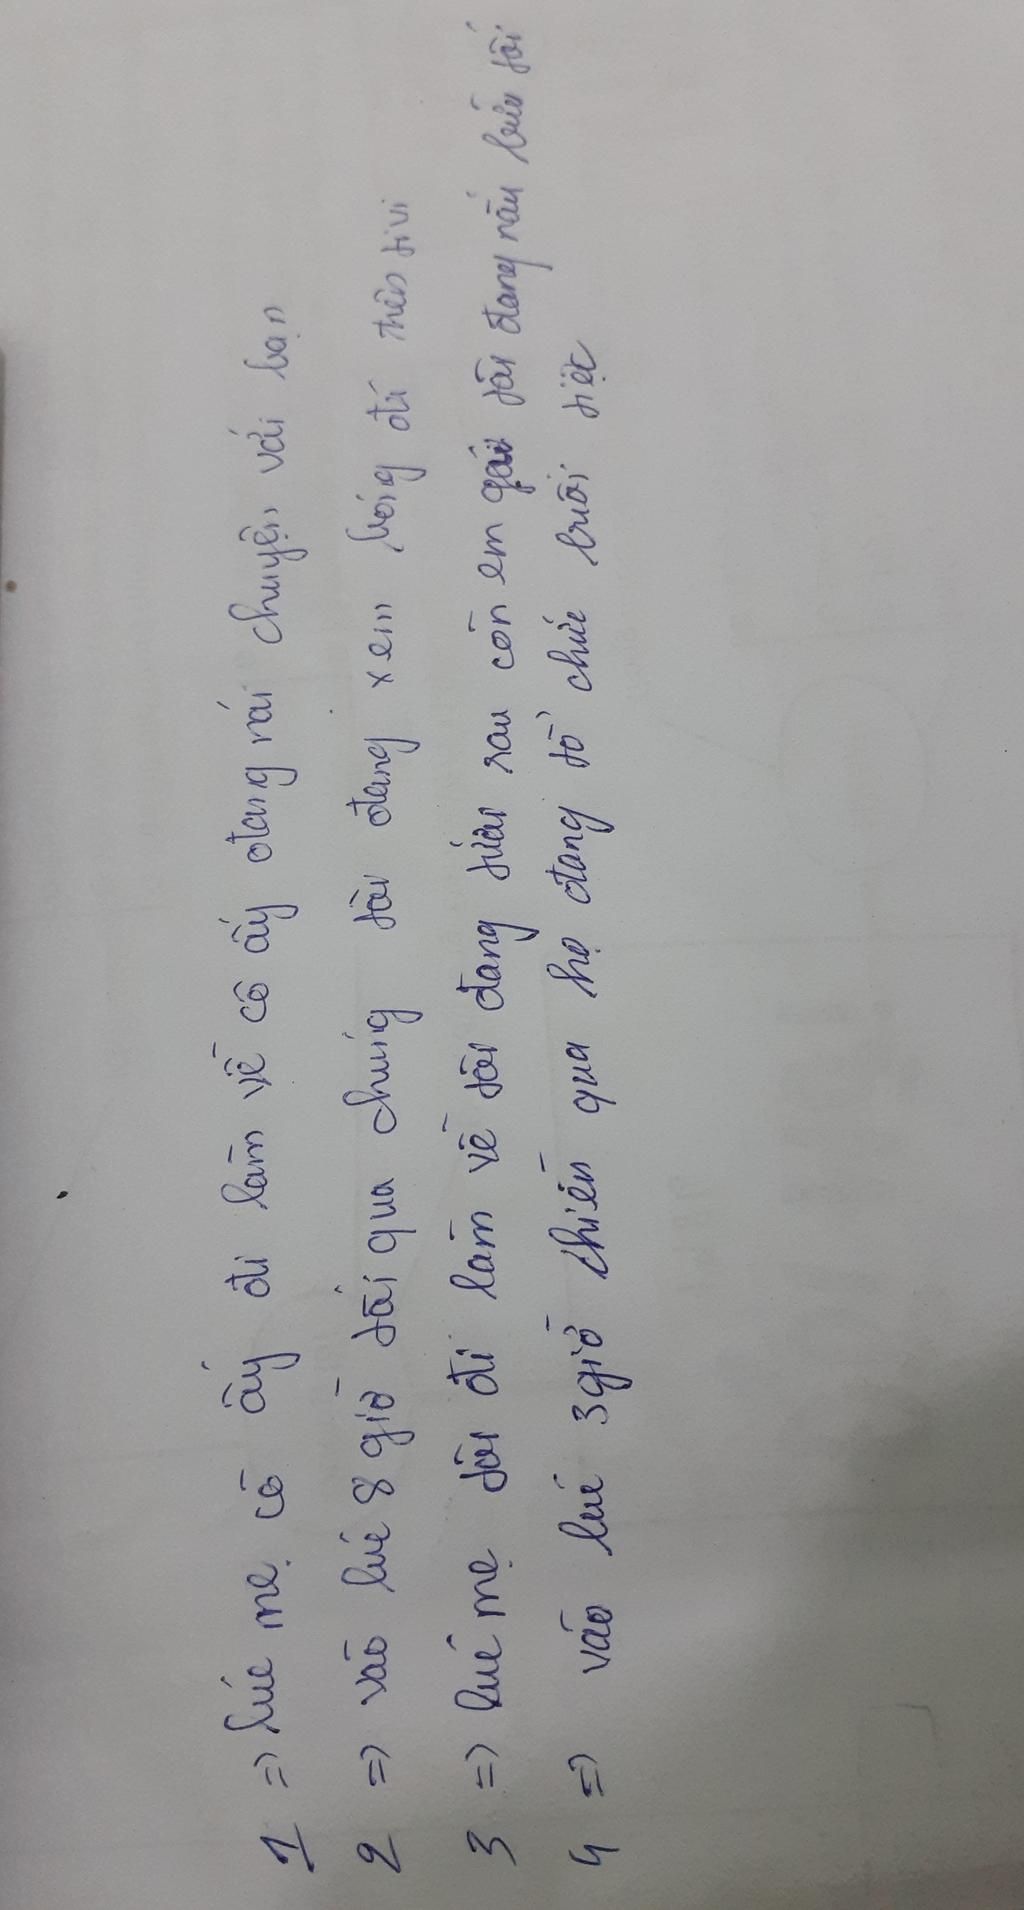 1 => lúc mẹ cô ấy đi làm về cô ấy đang nói chuyện với bạn
2 => vào lúc 8 giờ tối qua chúng tôi đang xem bóng đá trên tivi
3 => lúc mẹ tôi đi làm về tôi đang tưới rau còn em gái tôi đang nấu bữa tối
4 => vào lúc 3 giờ chiều qua họ đang tổ chức buổi tiệc